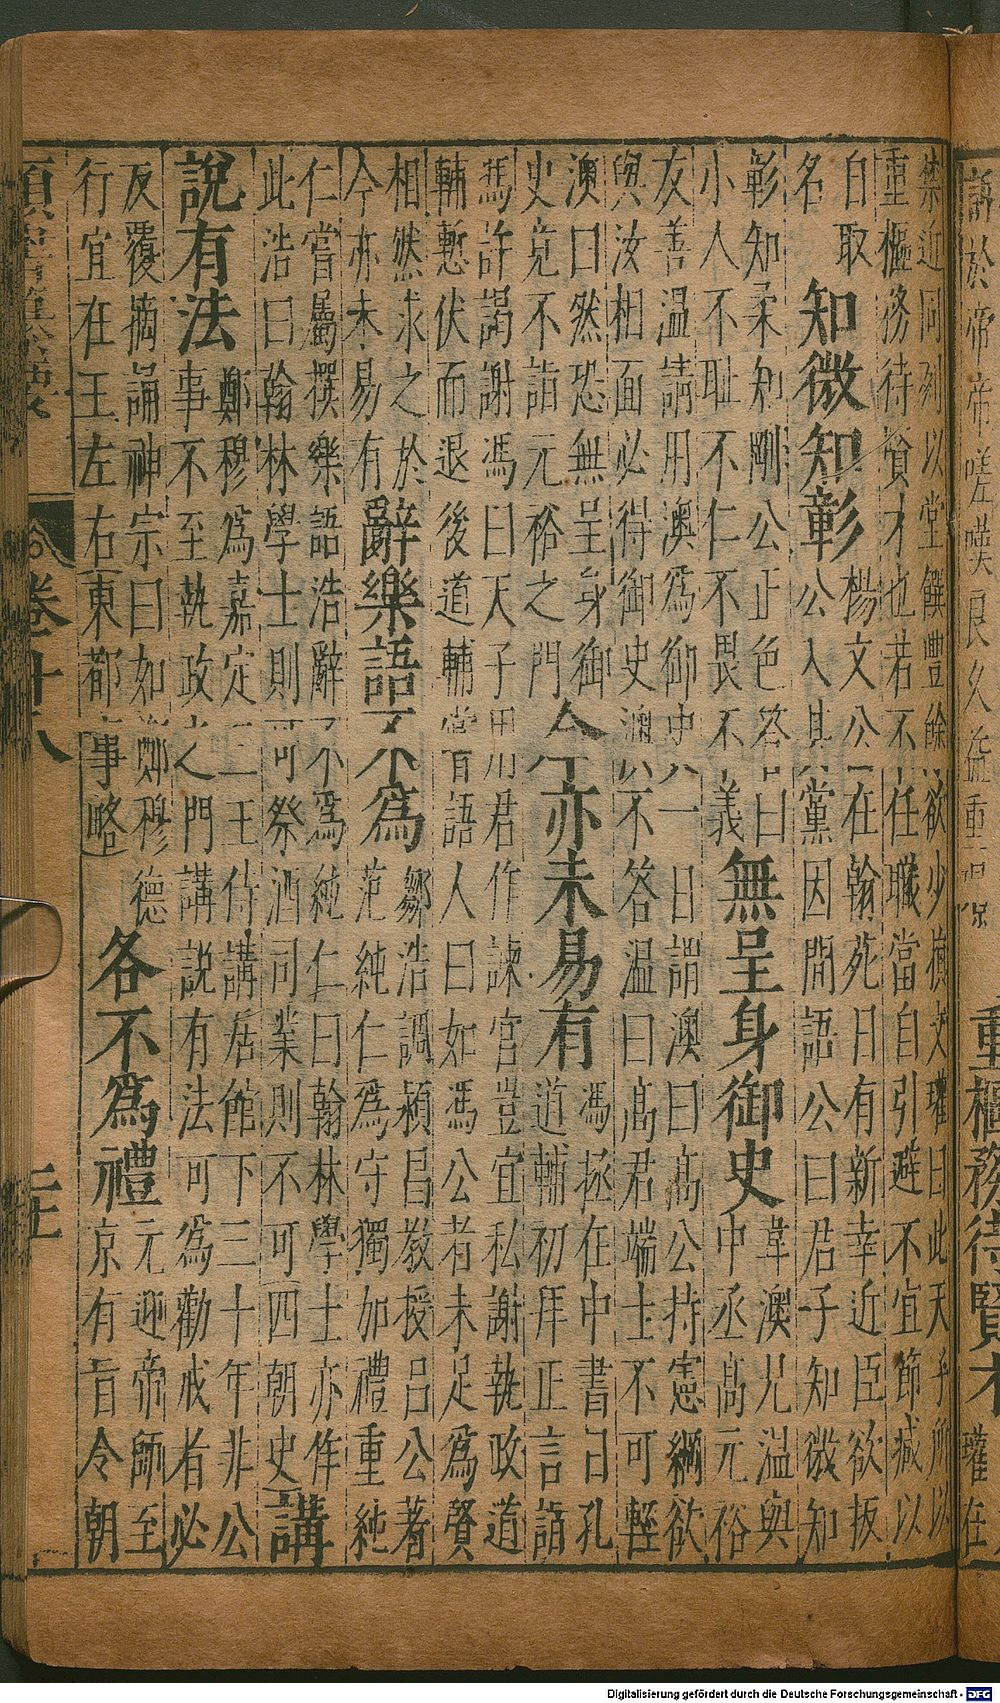 讓於帝帝嗟嘆良久益重 重樞務待賢才 瓘在
禁近同列以堂饌豐餘欲少損文瓘曰此天子所以
重樞務待賢才也若不任職當自引避不宜節減以
自取
名
知微知彰
楊文公在翰苑日有新幸近臣欲扳
公入其黨因間語公曰君子知微知
彰知柔知剛公正色答曰
小人不恥不仁不畏不義
無呈身御史
韋澳兄溫與
中丞高元裕
友善溫請用澳為御史一日謂澳曰高公持憲綱欲
與汝相面必得御史澳不答溫曰高君端士不可輕
澳曰然恐無呈身御
史竟不詣元裕之門
今亦未易有
馮拯在中書日孔
道輔初拜正言詣
馮許謁謝馮曰天子用君作諫官豈宜私謝執政道
輔慙伏而退後道輔嘗語人曰如馮公者未足為賢
相然求之於
今亦未易有
辭樂語不為
鄒浩調潁昌教授呂公著
范純仁為守獨加禮重純
仁嘗屬撰樂語浩辭不為純仁曰翰林學士亦作
此浩曰翰林學士則可祭酒司業則不可四朝史
講
說有法
鄭穆為嘉定二王侍講居館下三十年非公
事不至執政之門講說有法可為勸戒者必
反覆摘誦神宗曰如鄭穆德
行宜在王左右東都事略
各不為禮
元迎帝師至
京有旨令朝
卷十八
Digitalisierung gefördert durch die Deutsche Forschungsgemeinschaft - DFG